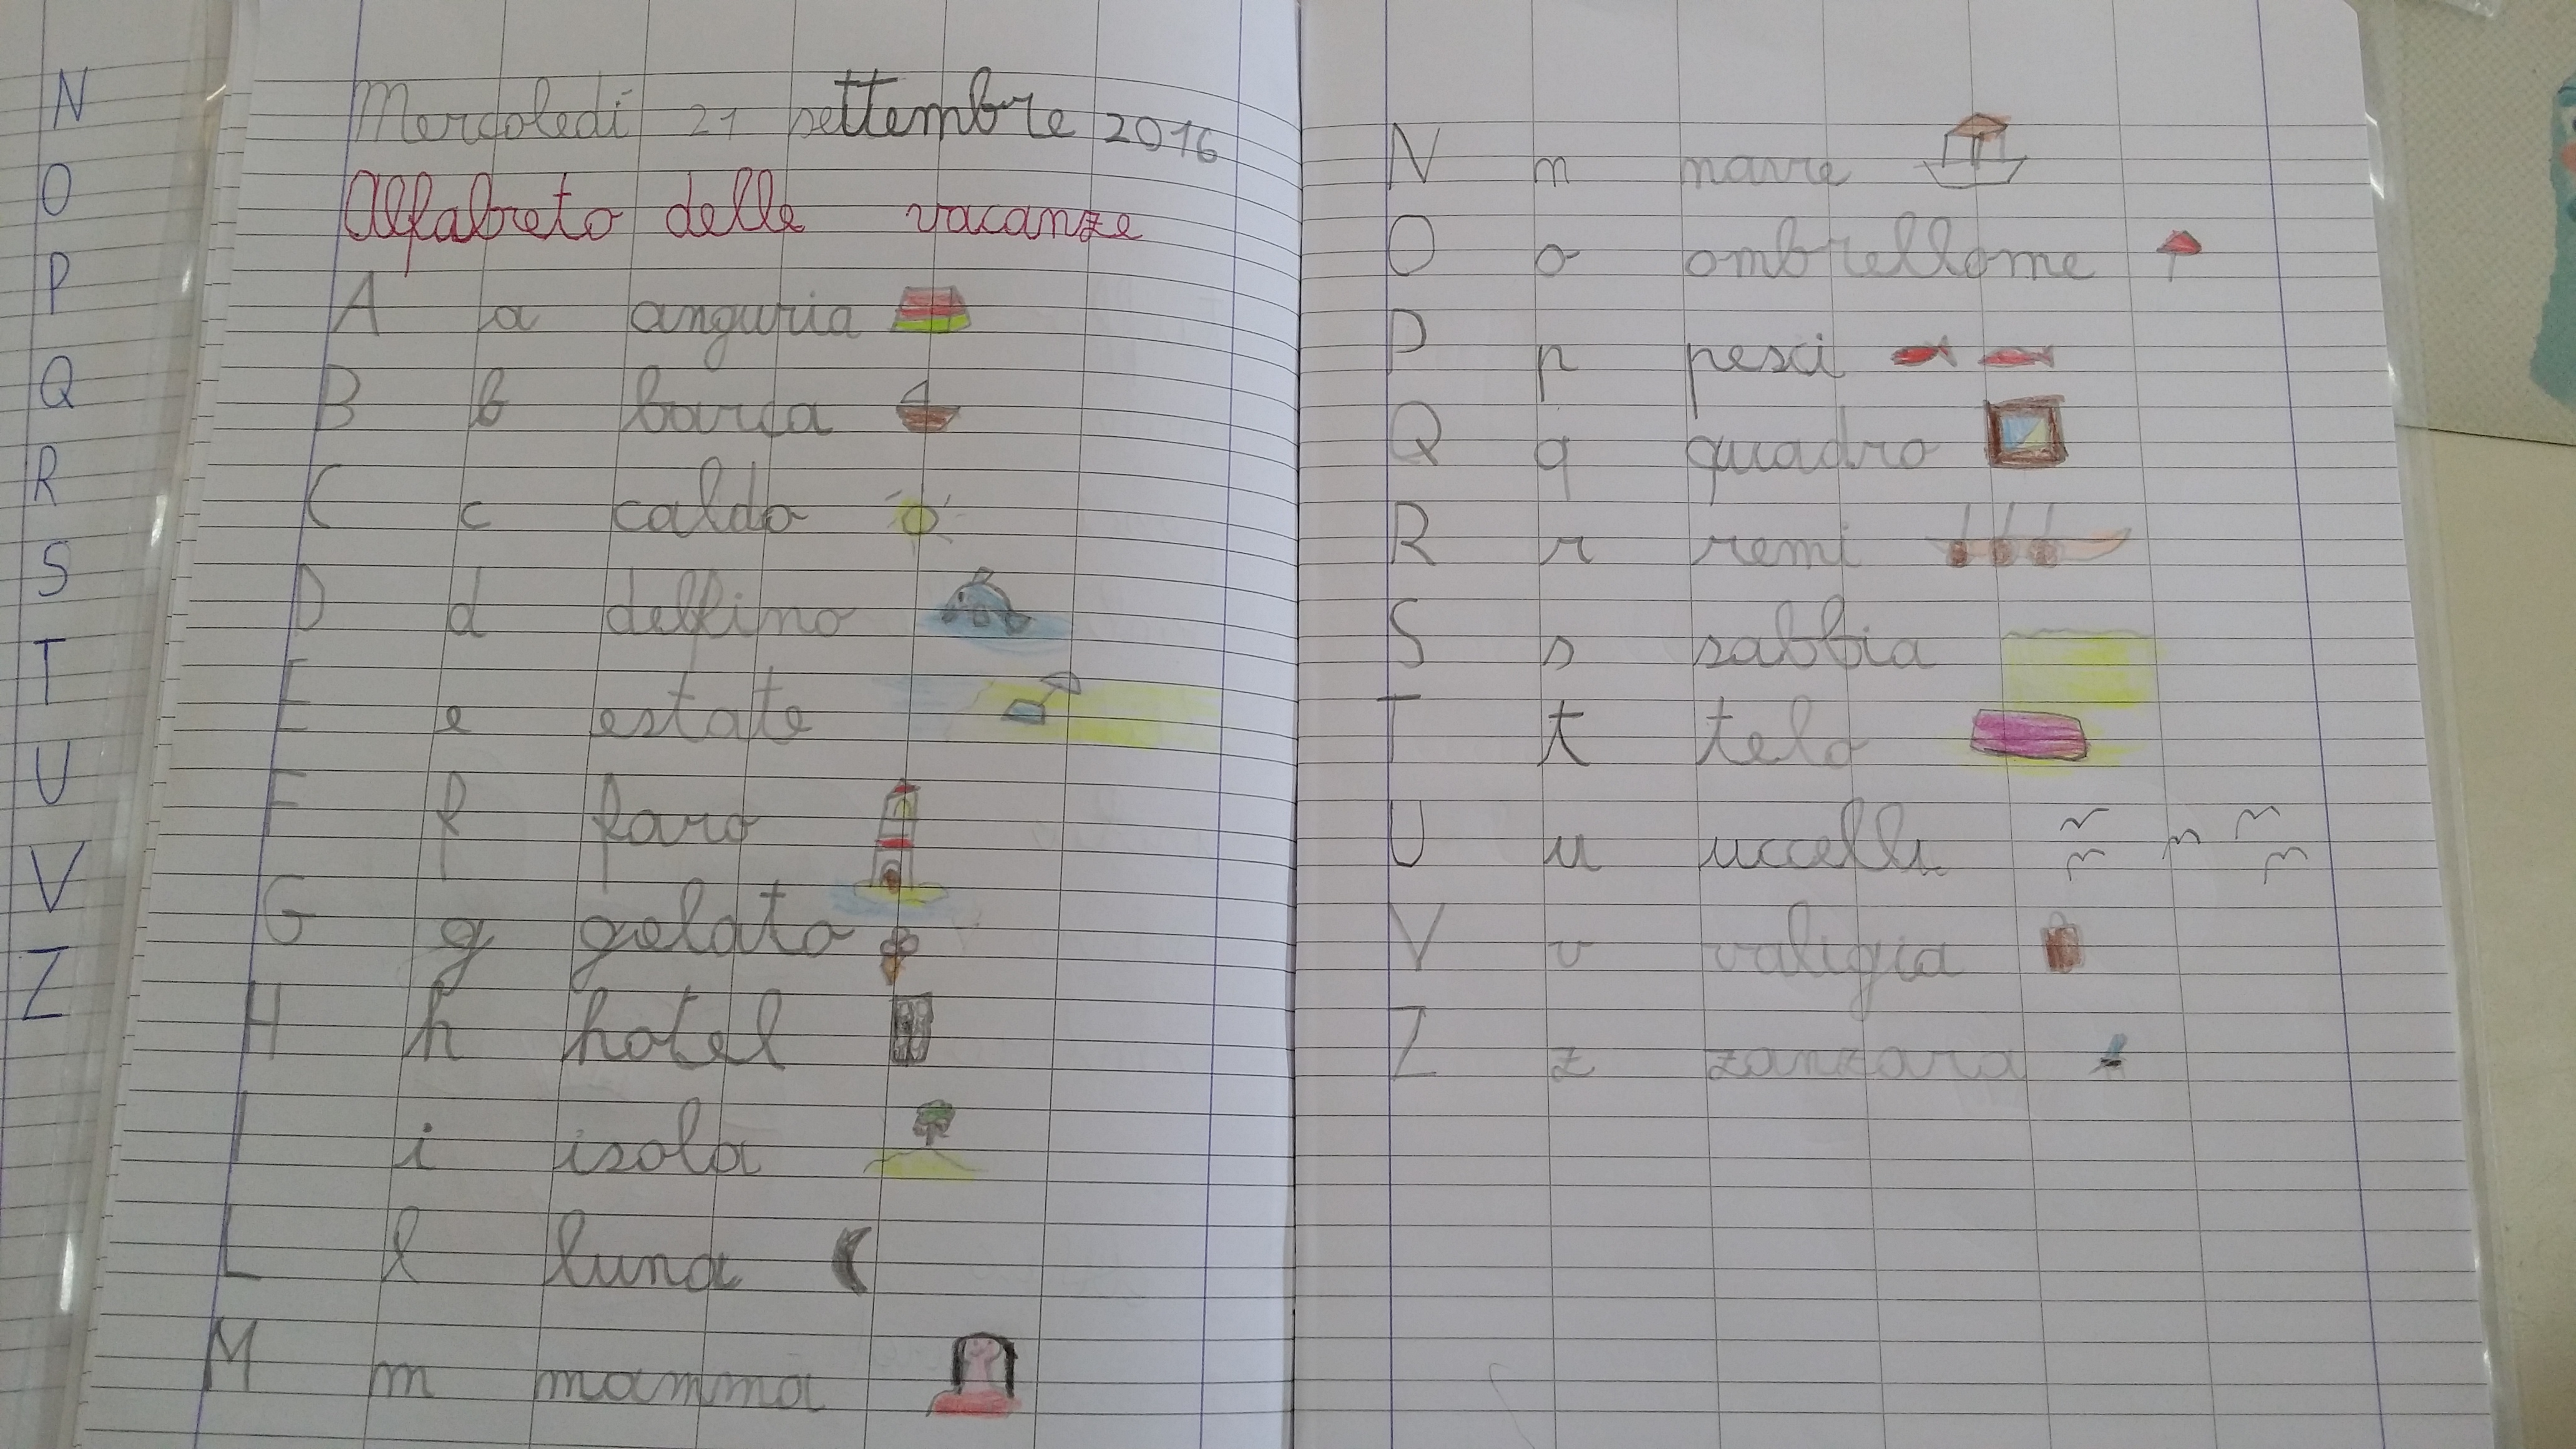 N
O
P
Q
R
S
T
U
V
Z
Mercoledì 21 settembre 2016
Alfabeto delle vacanze
A a anguria
B b barca
C c caldo
D d delfino
E e estate
F f faro
G g gelato
H h hotel
I i isola
L l luna
M m mamma
N n nave
O o ombrellone
P p pesci
Q q quadro
R r remi
S s sabbia
T t telo
U u uccelli
V v valigia
Z z zanzara